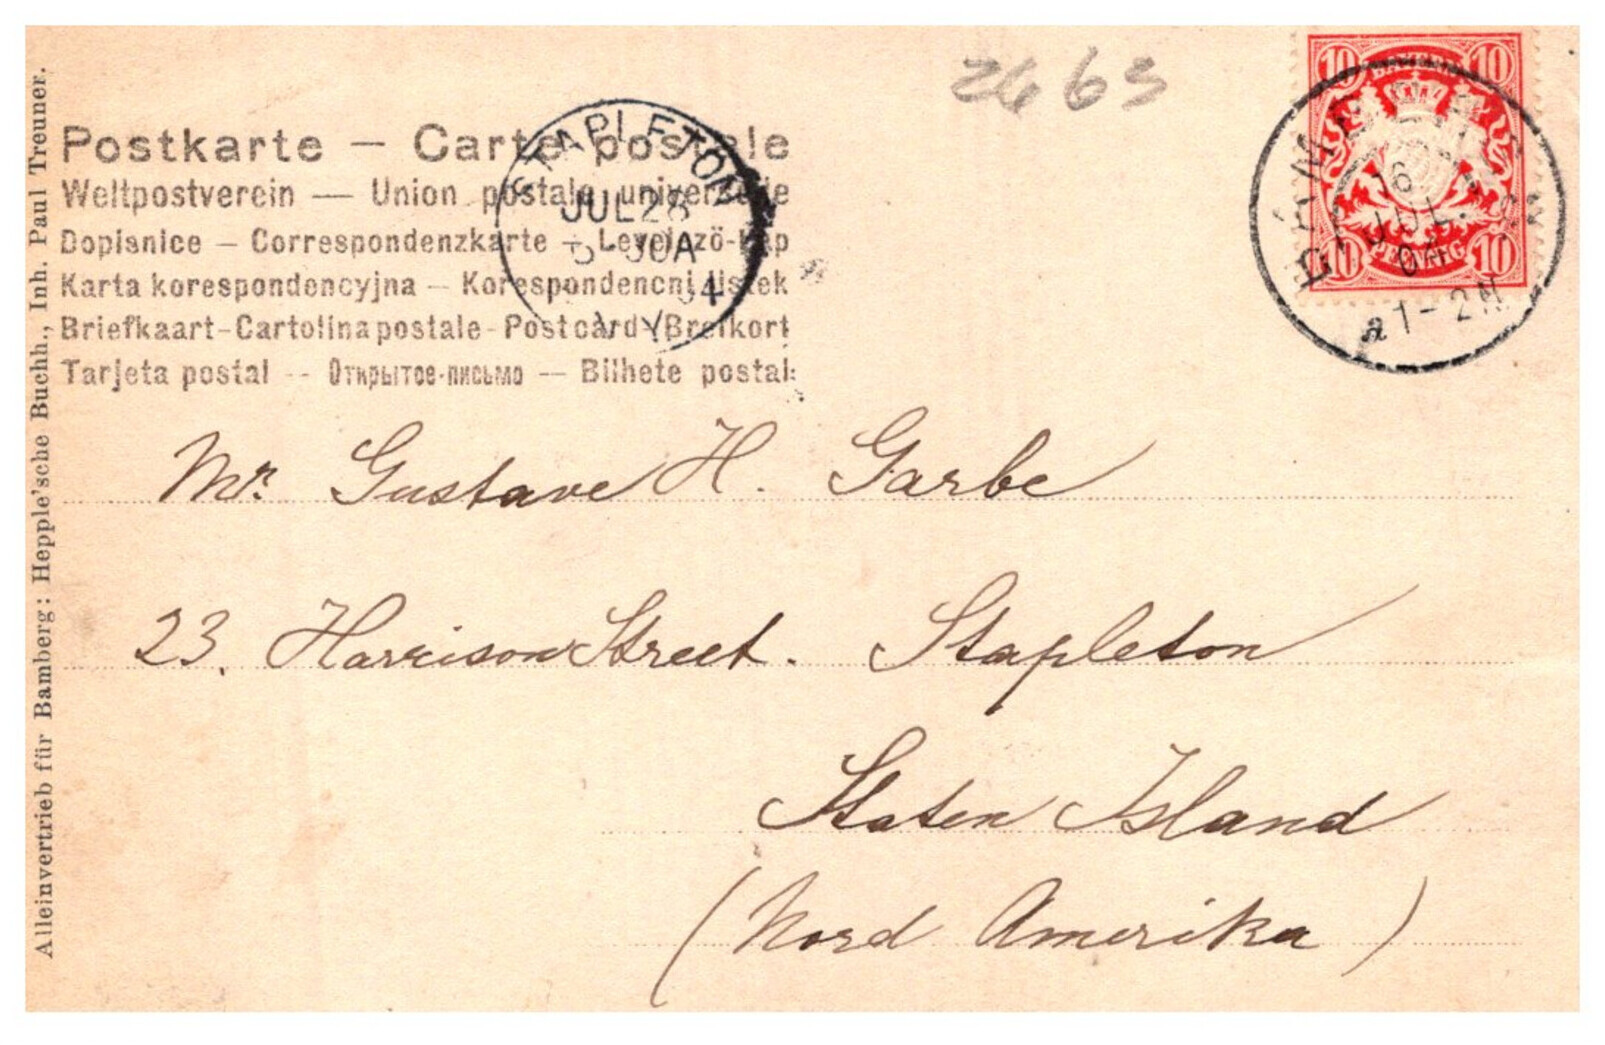 2663
Postkarte — Carte postale
Weltpostverein — Union postale universelle
Dopisnice — Correspondenzkarte — Levelező-Lap
Karta korespondencyjna — Korespondencni listek
Briefkaart-Cartolina postale-Postcard-Brefkort
Tarjeta postal -- Открытое-письмо — Bilhete postal
STAPLETON
JUL 28
N.Y.
10 BAYERN 10
10 PFENNIG 10
BAMBERG
16
JUL.
04
1-2N
Mr. Gustave H. Garbe
23. Harrison Street. Stapleton
Staten Island
(Nord Amerika)
Alleinvertrieb für Bamberg: Hepple'sche Buchh., Inh. Paul Treuner.